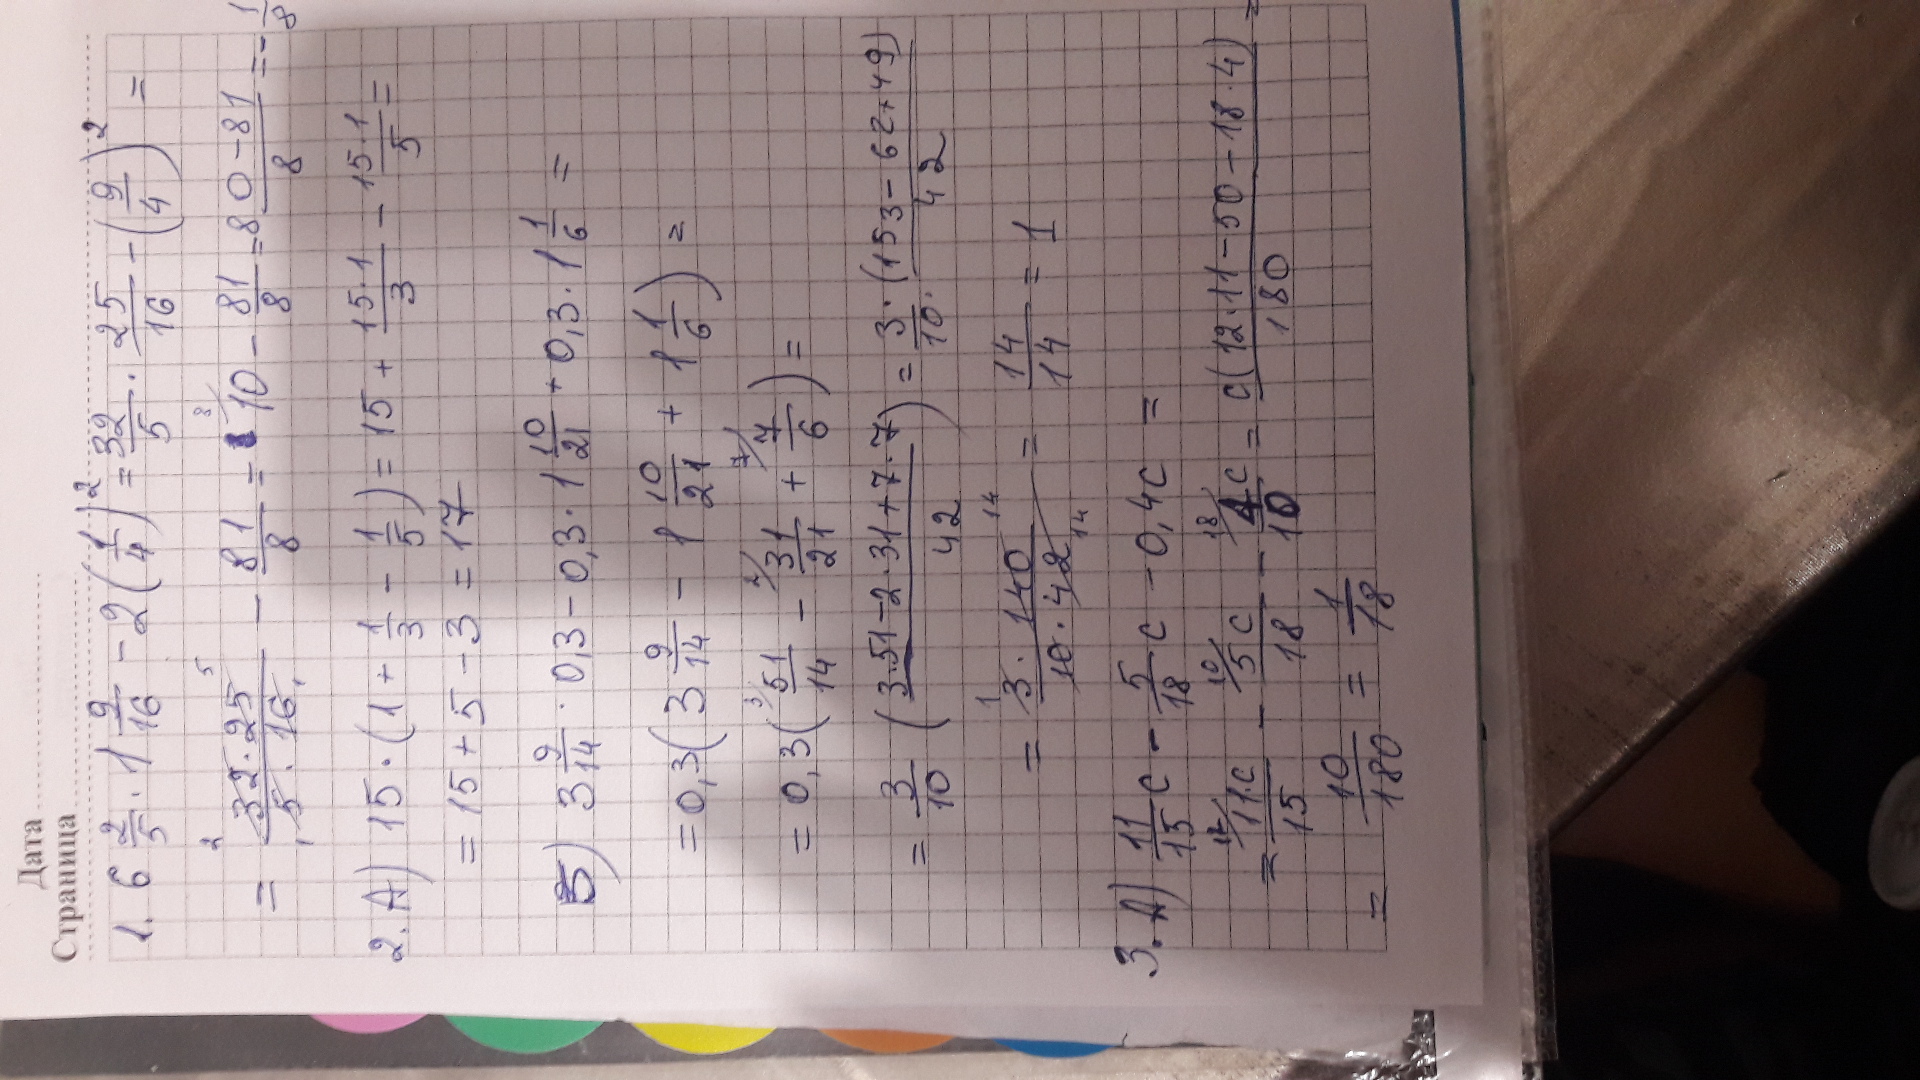 Дата
Страница
1. 6 2/5 · 1 9/16 - 2(1/4)² = 32/5 · 25/16 - (9/4)² =
= 32·25/5·16 - 81/8 = 10 - 81/8 = 80-81/8 = - 1/8
2. А) 15·(1 + 1/3 - 1/5) = 15 + 15·1/3 - 15·1/5 =
= 15 + 5 - 3 = 17
Б) 3 9/14 · 0,3 - 0,3 · 1 10/21 + 0,3 · 1 1/6 =
= 0,3(3 9/14 - 1 10/21 + 1 1/6) =
= 0,3(51/14 - 31/21 + 7/6) =
= 3/10 (3·51-2·31+7·7/42) = 3/10 · (153-62+49)/42
= 3·140/10·42 = 14/14 = 1
3. А) 11/15 c - 5/18 c - 0,4c =
= 11c/15 - 5c/18 - 4c/10 = c(12·11-50-18·4)/180 =
= 10/180 = 1/18